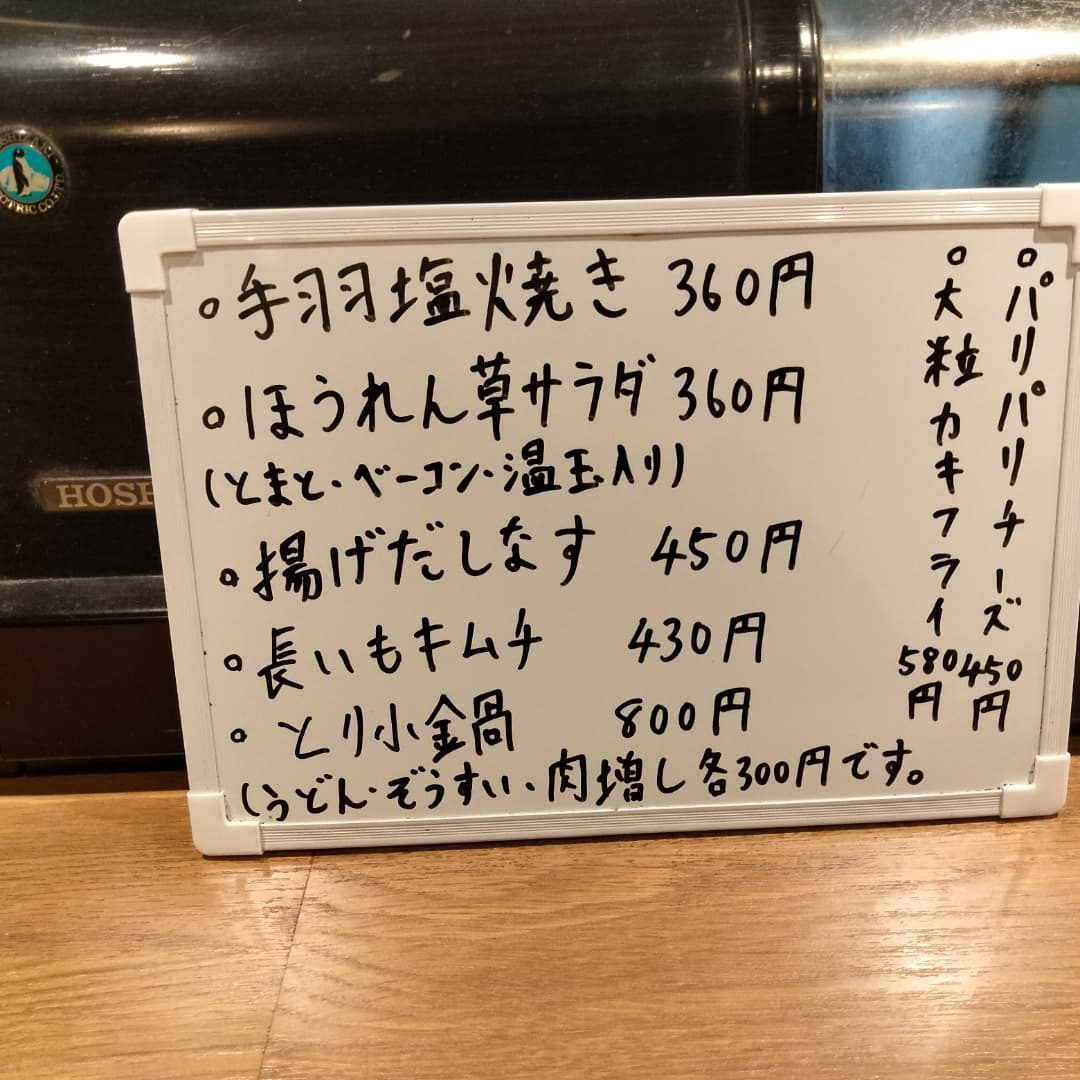 。手羽塩焼き 360円
。ほうれん草サラダ 360円
(とまと・ベーコン・温玉入り)
。揚げだしなす 450円
。長いもキムチ 430円
。とり小鍋 800円
(うどん・ぞうすい、肉増し各300円です。
。パリパリチーズ 450円
。大粒カキフライ 580円
HOSH